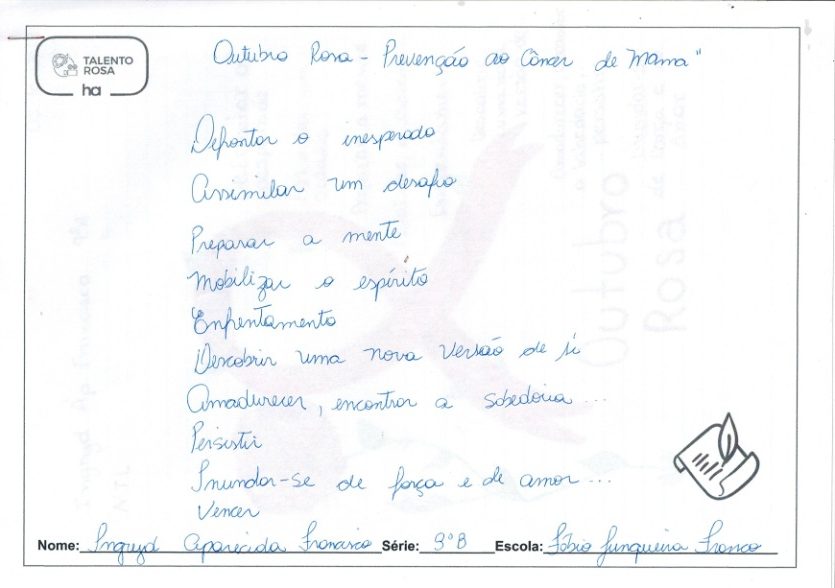 TALENTO
ROSA
ha
Outubro Rosa - Prevenção ao Câncer de Mama"
Defrontar o inesperado
Assimilar um desafio
Preparar a mente
Mobilizar o espírito
Enfrentamento
Descobrir uma nova versão de si
Amadurecer, encontrar a sabedoria...
Persistir
Inundar-se de força e de amor...
Vencer
Nome: Ingryd Aparecida Francisco Série: 9ºB Escola: Fábio Junqueira Franco